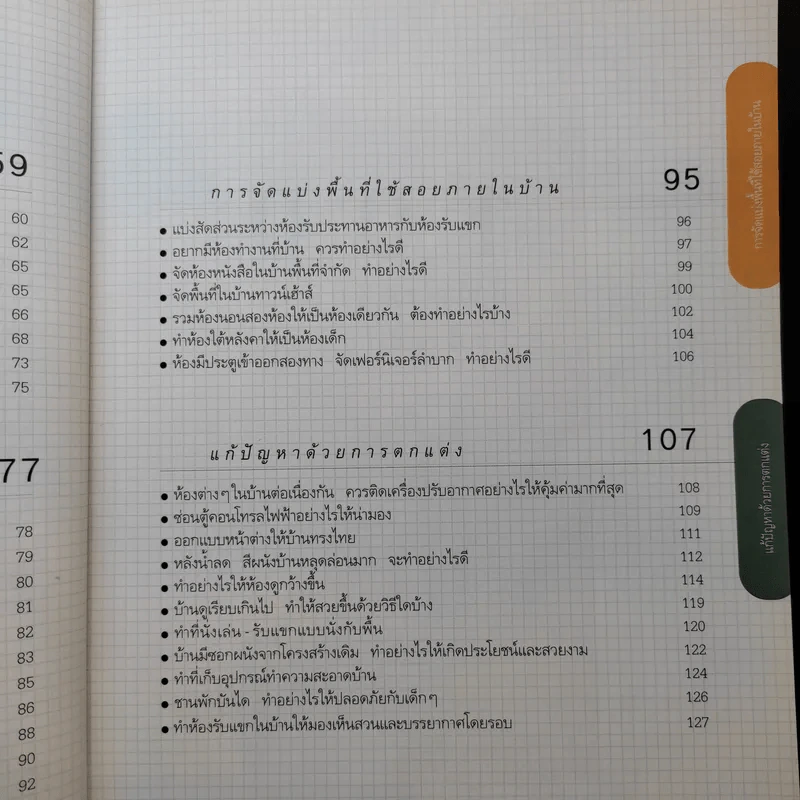 59
60
62
65
65
66
68
73
75
77
78
79
80
81
82
83
85
86
88
90
92
การจัดแบ่งพื้นที่ใช้สอยภายในบ้าน 95
● แบ่งสัดส่วนระหว่างห้องรับประทานอาหารกับห้องรับแขก 96
● อยากมีห้องทำงานที่บ้าน ควรทำอย่างไรดี 97
● จัดห้องหนังสือในบ้านพื้นที่จำกัด ทำอย่างไรดี 99
● จัดพื้นที่ในบ้านทาวน์เฮ้าส์ 100
● รวมห้องนอนสองห้องให้เป็นห้องเดียวกัน ต้องทำอย่างไรบ้าง 102
● ทำห้องใต้หลังคาให้เป็นห้องเด็ก 104
● ห้องมีประตูเข้าออกสองทาง จัดเฟอร์นิเจอร์ลำบาก ทำอย่างไรดี 106
แก้ปัญหาด้วยการตกแต่ง 107
● ห้องต่างๆในบ้านต่อเนื่องกัน ควรติดเครื่องปรับอากาศอย่างไรให้คุ้มค่ามากที่สุด 108
● ซ่อนตู้คอนโทรลไฟฟ้าอย่างไรให้น่ามอง 109
● ออกแบบหน้าต่างให้บ้านทรงไทย 111
● หลังน้ำลด สีผนังบ้านหลุดล่อนมาก จะทำอย่างไรดี 112
● ทำอย่างไรให้ห้องดูกว้างขึ้น 114
● บ้านดูเรียบเกินไป ทำให้สวยขึ้นด้วยวิธีใดบ้าง 119
● ทำที่นั่งเล่น - รับแขกแบบนั่งกับพื้น 120
● บ้านมีซอกผนังจากโครงสร้างเดิม ทำอย่างไรให้เกิดประโยชน์และสวยงาม 122
● ทำที่เก็บอุปกรณ์ทำความสะอาดบ้าน 124
● ชานพักบันได ทำอย่างไรให้ปลอดภัยกับเด็กๆ 126
● ทำห้องรับแขกในบ้านให้มองเห็นสวนและบรรยากาศโดยรอบ 127
การจัดแบ่งพื้นที่ใช้สอยภายในบ้าน
แก้ปัญหาด้วยการตกแต่ง